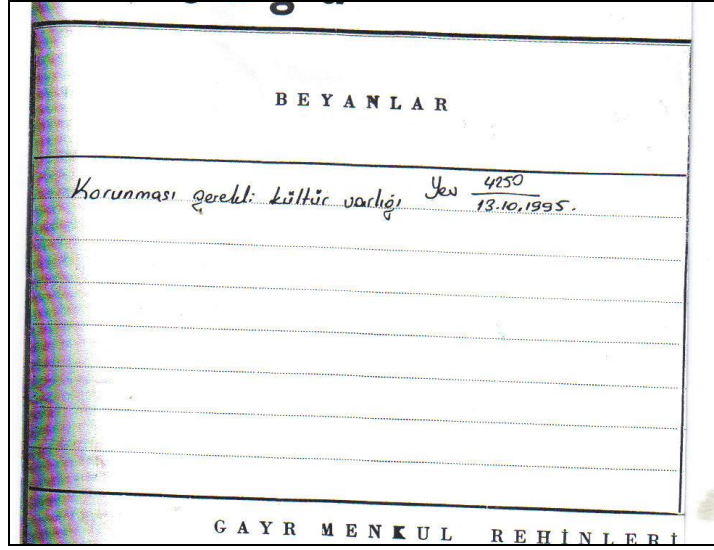 BEYANLAR
Korunması gerekli kültür varlığı Yev 4250
13.10.1995.
GAYR MENKUL REHİNLERİ